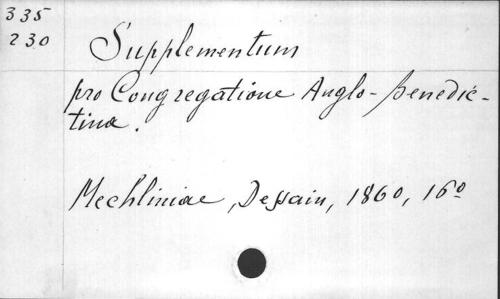 335
230
Supplementum
pro Congregatione Anglo-Benedic-
tina.
Mechliniae, Dessain, 1860, 16º